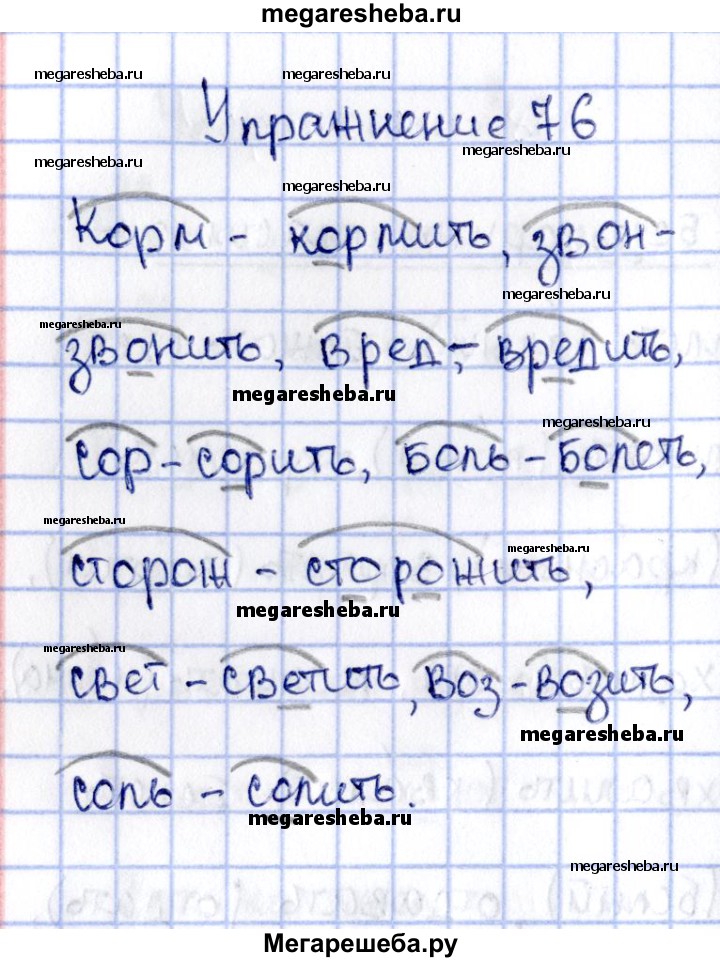 megaresheba.ru
megaresheba.ru megaresheba.ru
Упражнение 76
megaresheba.ru
megaresheba.ru
megaresheba.ru
Корм - кормить, звон-
megaresheba.ru
megaresheba.ru
звонить, вред, - вредить,
megaresheba.ru
megaresheba.ru
сор - сорить, боль - болеть,
megaresheba.ru
megaresheba.ru
сторож - сторожить,
megaresheba.ru
megaresheba.ru
свет - светить, воз - возить,
megaresheba.ru
соль - солить.
megaresheba.ru
megaresheba.ru
Мегарешеба.ру